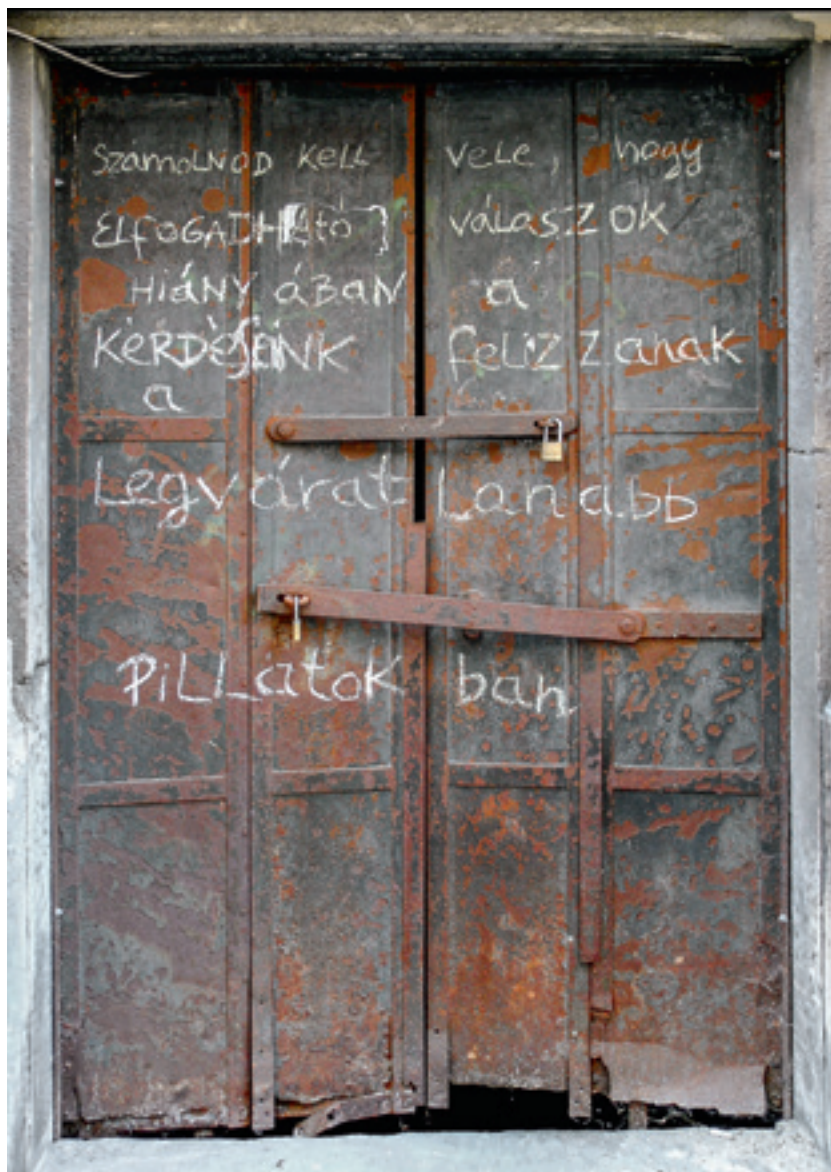 SzámoLNOD KELL VELE, hogy
ELfOGADHAtó VÁLASZOK
HIÁNY ÁBAN a
KÉRDÉSEINK feLIZZanak
a
Legvárat Lanabb
PiLLatok ban